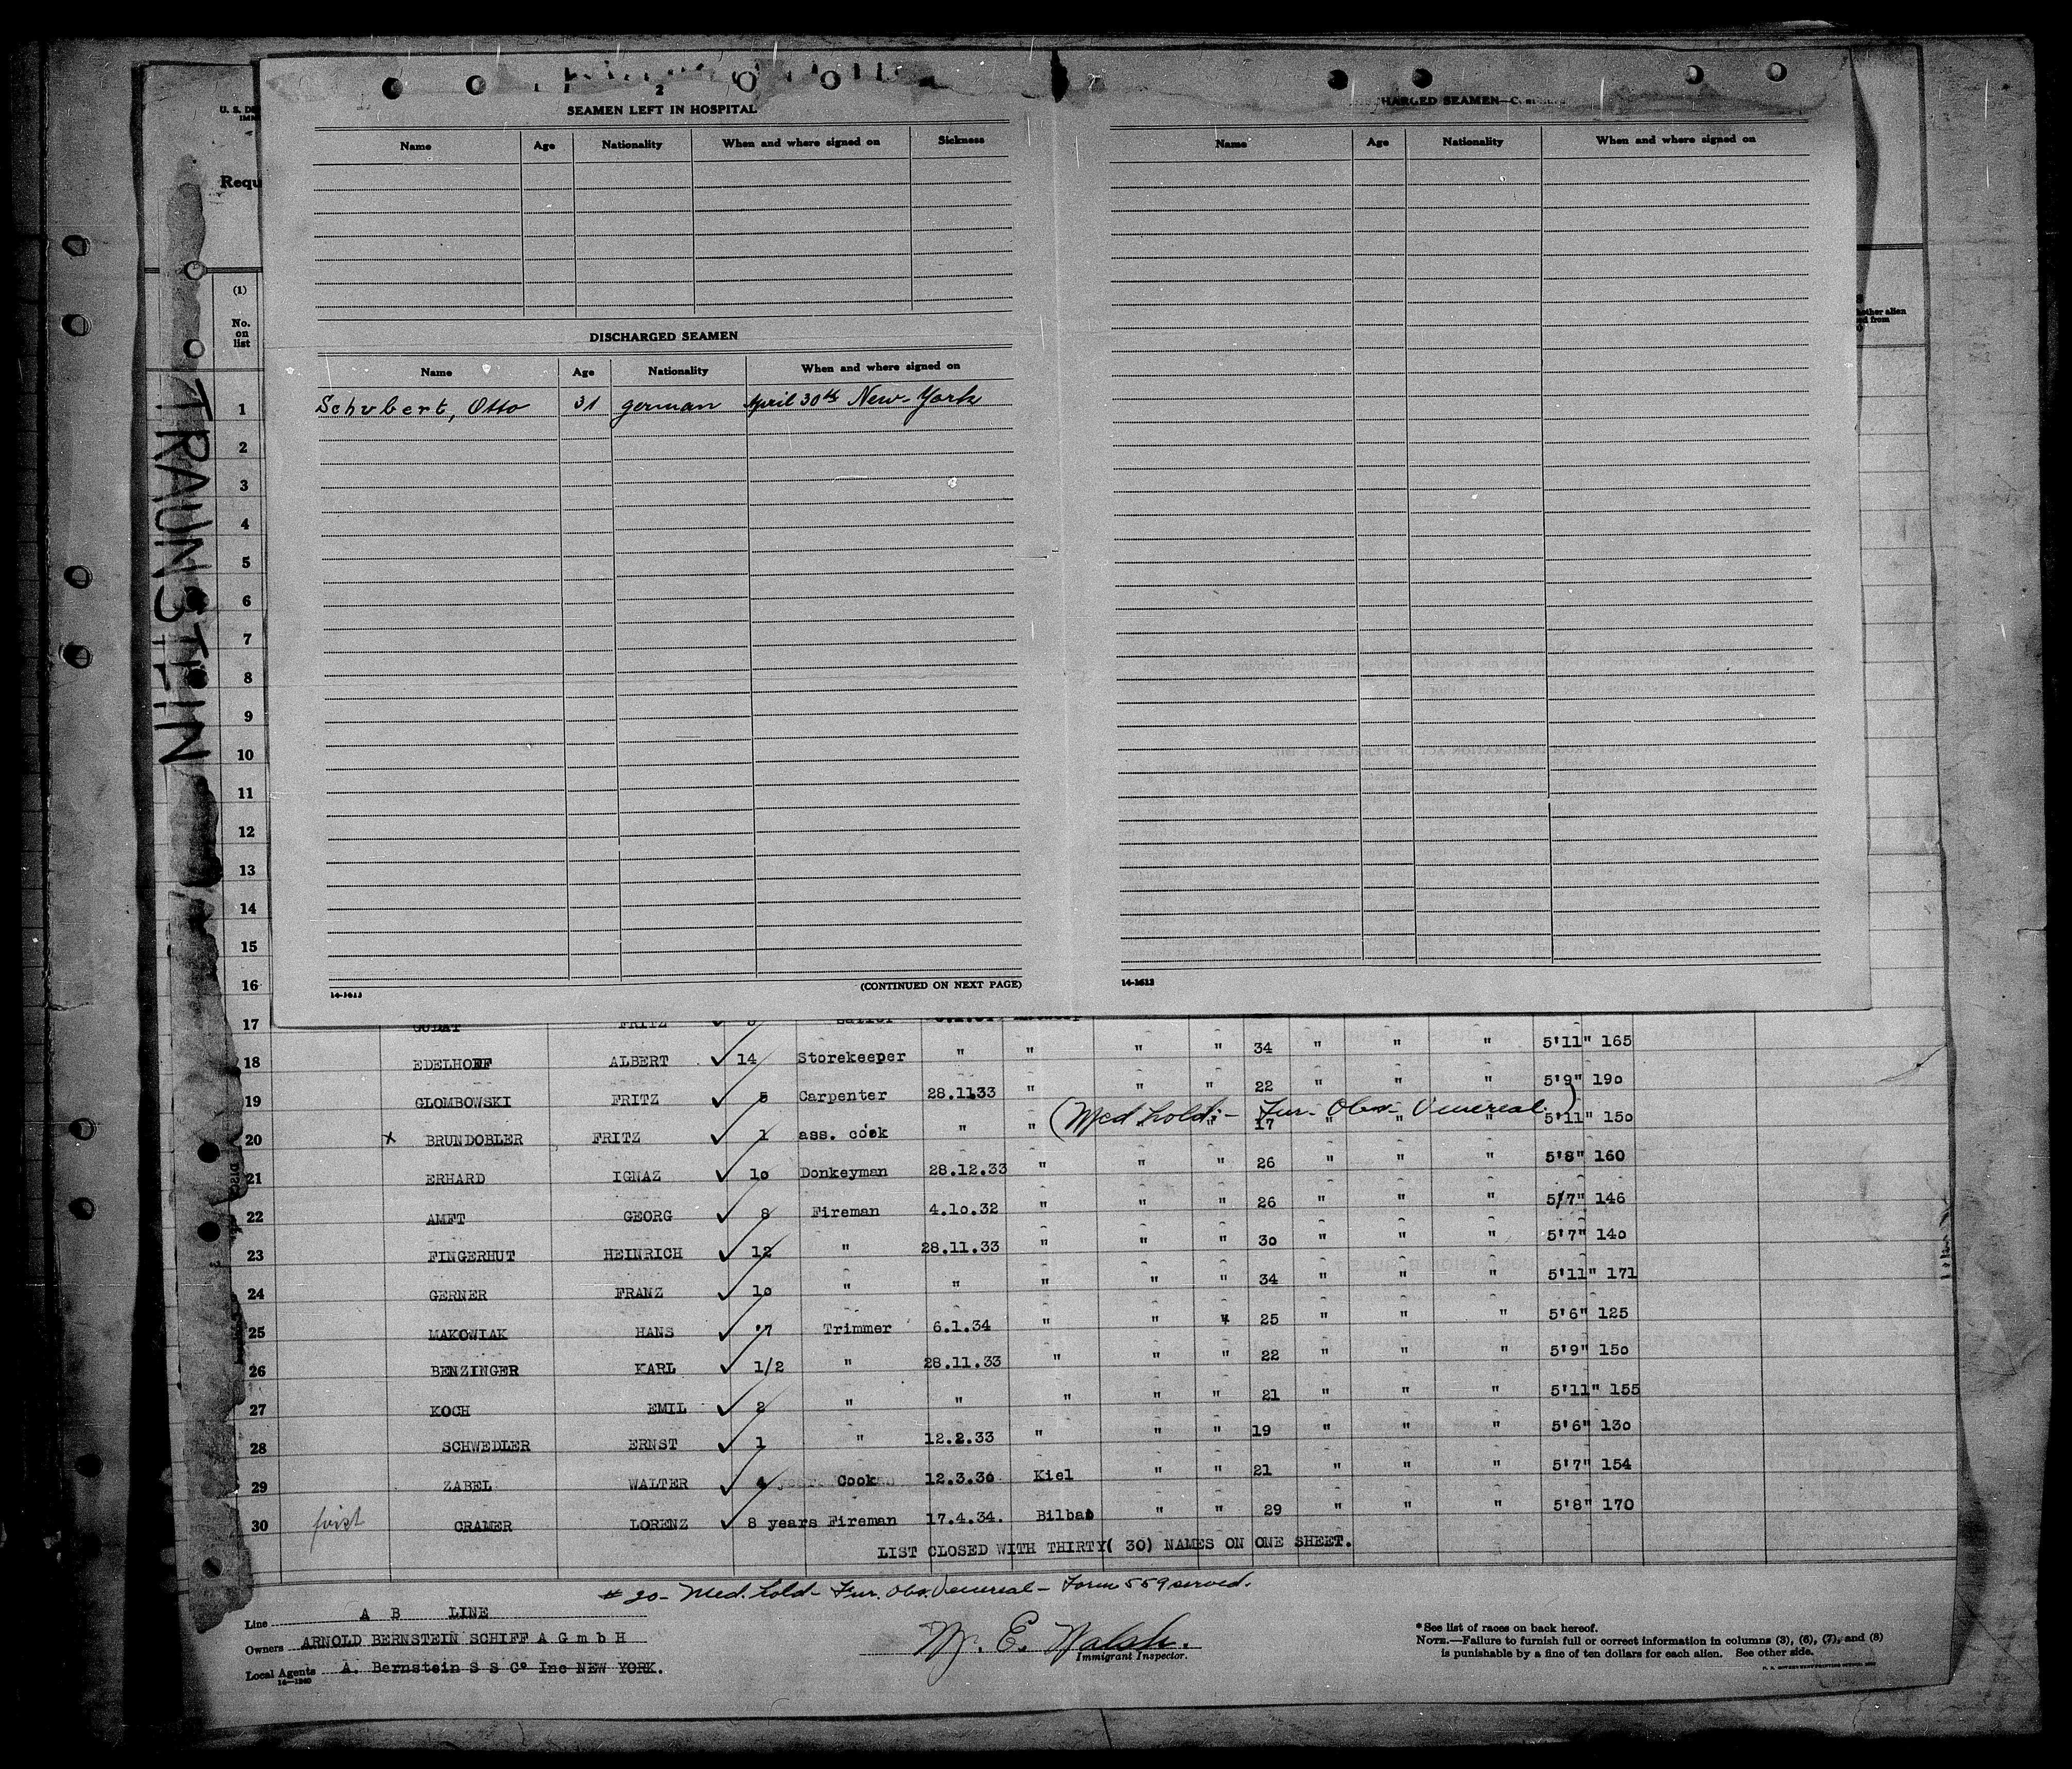 U. S. DE
IMM
Requ
(1)
No.
on
list
TRAUNSTEIN
2
SEAMEN LEFT IN HOSPITAL
Name Age Nationality When and where signed on Sickness
DISCHARGED SEAMEN
Name Age Nationality When and where signed on
Schubert, Otto 31 german April 30th New-York
14-1613
(CONTINUED ON NEXT PAGE)
CHARGED SEAMEN—
Name Age Nationality When and where signed on
14-1613
other alien
ed from
1
2
3
4
5
6
7
8
9
10
11
12
13
14
15
16
17 GUDAT FRITZ
18 EDELHOFF ALBERT ✓ 14 Storekeeper " " " " 34 " " " 5'11" 165
19 GLOMBOWSKI FRITZ ✓ 5 Carpenter 28.1133 " " " 22 " " " 5'9" 190
(Med hold:- Fur. Obs. Venereal)
20 x BRUNDOBLER FRITZ ✓ 1 ass. cook " " " " 17 " " " 5'11" 150
21 ERHARD IGNAZ ✓ 10 Donkeyman 28.12.33 " " " 26 " " " 5'8" 160
22 AMFT GEORG ✓ 8 Fireman 4.10.32 " " " 26 " " " 5'7" 146
23 FINGERHUT HEINRICH ✓ 12 " 28.11.33 " " " 30 " " " 5'7" 140
24 GERNER FRANZ ✓ 10 " " " " " 34 " " " 5'11" 171
25 MAKOWIAK HANS ✓ 7 Trimmer 6.1.34 " " " 25 " " " 5'6" 125
26 BENZINGER KARL ✓ 1/2 " 28.11.33 " " " 22 " " " 5'9" 150
27 KOCH EMIL ✓ 2 " " " " " 21 " " " 5'11" 155
28 SCHWEDLER ERNST ✓ 1 " 12.2.33 " " " 19 " " " 5'6" 130
29 ZABEL WALTER ✓ 4 Cook 12.3.30 Kiel " " 21 " " " 5'7" 154
30 first CRAMER LORENZ ✓ 8 years Fireman 17.4.34. Bilbao " " 29 " " " 5'8" 170
LIST CLOSED WITH THIRTY( 30) NAMES ON ONE SHEET.
# 20- Med. hold- Fur. Obs. Venereal- Form 559 served.
Line A B LINE
Owners ARNOLD BERNSTEIN SCHIFF A G m b H
Local Agents A. Bernstein S S Co Inc NEW YORK.
14-1240
W. E. Walsh.
Immigrant Inspector.
*See list of races on back hereof.
NOTE.—Failure to furnish full or correct information in columns (3), (6), (7), and (8)
is punishable by a fine of ten dollars for each alien. See other side.